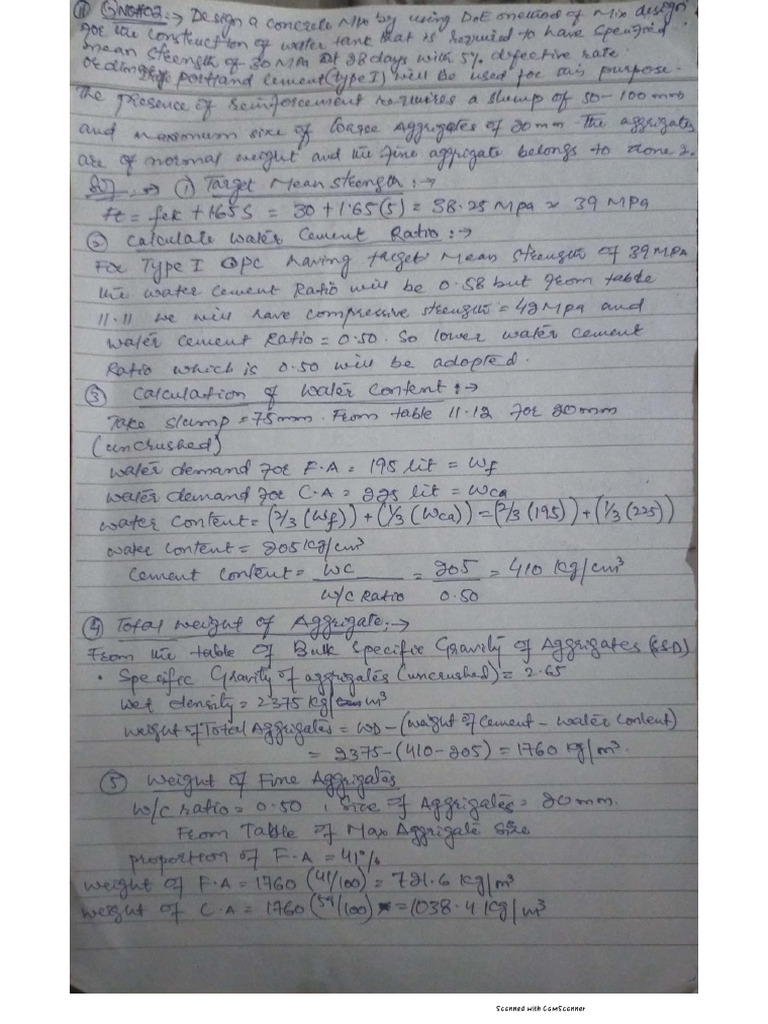 Q No#02:→ Design a concrete Mix by using DoE method of Mix design
for the construction of water tank that is required to have specified
mean strength of 30 MPa at 28 days with 5% defective rate.
portland cement (type I) will be used for this purpose.
The presence of Reinforcement requires a slump of 50-100mm
and maximum size of Coarse Aggregates of 20mm. The aggrigates
are of normal weight and the fine aggrigate belongs to zone 2.
Sol :→ ① Target Mean Strength:→
ft = fck + 1.65 S = 30 + 1.65(5) = 38.25 MPa ≈ 39 MPa
② Calculate Water Cement Ratio:→
For Type I OPC having target Mean strength of 39MPa
the water cement Ratio will be 0.58 but from table
11.11 we will have compressive strength = 42MPa and
water cement Ratio = 0.50. So lower water cement
Ratio which is 0.50 will be adopted.
③ Calculation of Water Content:→
Take slump = 75mm. From table 11.12 for 20mm
(uncrushed)
water demand for F.A = 195 lit = Wf
water demand for C.A = 225 lit = Wca
water Content = (2/3 (Wf)) + (1/3 (Wca)) = (2/3 (195)) + (1/3 (225))
water Content = 205 kg/cm³
Cement Content = WC / W/C Ratio = 205 / 0.50 = 410 kg/cm³
④ Total weight of Aggrigate:→
From the table of Bulk Specific Gravity of Aggrigates (SSD)
• Specific Gravity of aggrigates (uncrushed) = 2.65
Wet density = 2375 kg/m³
weight of Total Aggrigates = WD - (weight of Cement - water Content)
= 2375 - (410 - 205) = 1760 kg/m³.
⑤ Weight of Fine Aggrigates
W/C ratio = 0.50 , Size of Aggrigates = 20mm.
From Table of Max Aggrigate Size
proportion of F.A = 41%
weight of F.A = 1760 (41/100) = 721.6 kg/m³
weight of C.A = 1760 (59/100) = 1038.4 kg/m³
Scanned with CamScanner